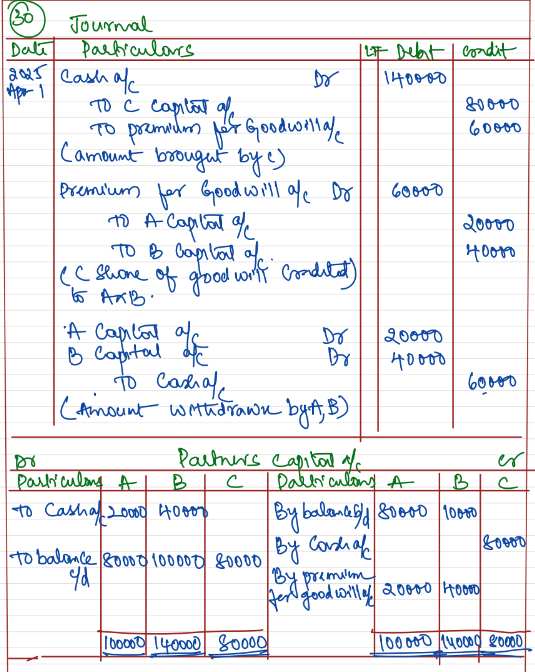 30 Journal
Date Particulars LF Debit Credit
2025 Cash a/c Dr 140000
Apr 1
To C Capital a/c 80000
To premium for Goodwill a/c 60000
(amount brought by C)
Premium for Goodwill a/c Dr 60000
To A Capital a/c 20000
To B Capital a/c. 40000
(C Share of goodwill Credited)
to A & B.
A Capital a/c Dr 20000
B Capital a/c Dr 40000
To Cash a/c 60000
(Amount withdrawn by A, B)
Dr Partners Capital a/c cr
Particulars A B C Particulars A B C
To Cash a/c 20000 40000 By balance b/d 80000 10000
By Cash a/c 80000
To balance c/d 80000 100000 80000 By premium
for goodwill a/c 20000 40000
100000 140000 80000 100000 140000 80000